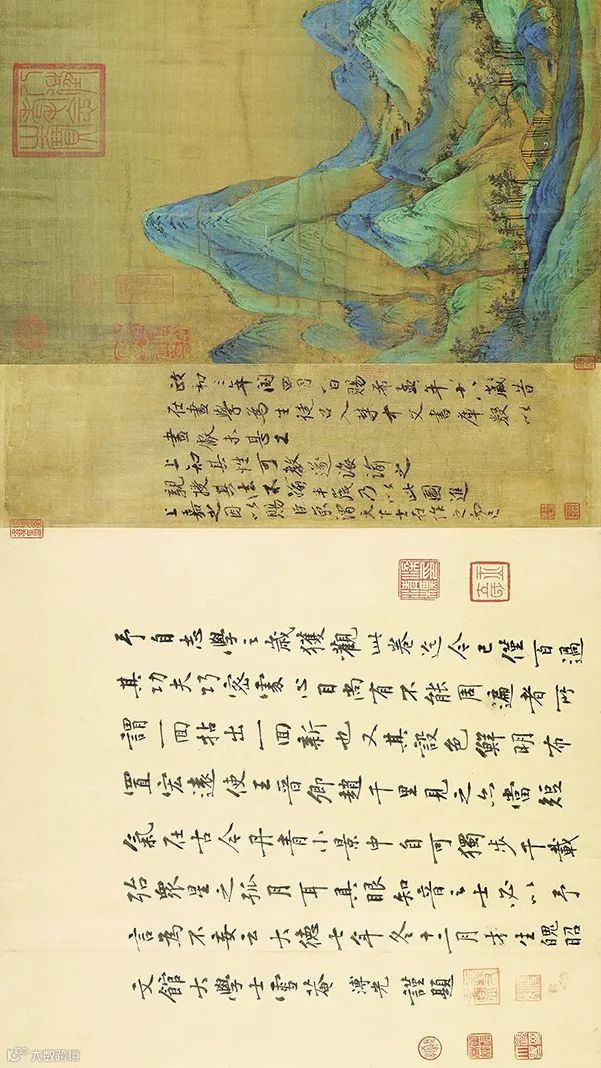 政和三年閏四月一日賜希孟年十八歲昔
在畫學為生徒召入禁中文書庫數以
畫獻未甚工
上知其性可教遂誨諭之
親授其法不踰半歲乃以此圖進
上嘉之因以賜臣京謂天下士在作之而已
予自志學之歲獲觀此卷迄今已僅百過
其功夫巧密處心目尚有不能周遍者所
謂一回拈出一回新也又其設色鮮明布
置宏遠使王晉卿趙千里見之亦當短
氣在古今丹青小景中自可獨步千載
殆眾星之孤月耳具眼知音之士必以予
言為不妄云大德七年冬十二月才生魄昭
文館大學士雪菴溥光謹題
大数跨境